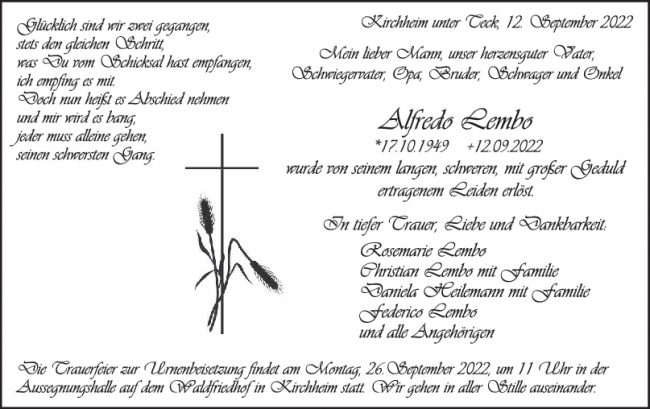 Glücklich sind wir zwei gegangen,
stets den gleichen Schritt,
was Du vom Schicksal hast empfangen,
ich empfing es mit.
Doch nun heißt es Abschied nehmen
und mir wird es bang,
jeder muss alleine gehen,
seinen schwersten Gang.
Kirchheim unter Teck, 12. September 2022
Mein lieber Mann, unser herzensguter Vater,
Schwiegervater, Opa, Bruder, Schwager und Onkel
Alfredo Lembo
*17.10.1949 +12.09.2022
wurde von seinem langen, schweren, mit großer Geduld
ertragenem Leiden erlöst.
In tiefer Trauer, Liebe und Dankbarkeit:
Rosemarie Lembo
Christian Lembo mit Familie
Daniela Heilemann mit Familie
Federico Lembo
und alle Angehörigen
Die Trauerfeier zur Urnenbeisetzung findet am Montag, 26. September 2022, um 11 Uhr in der
Aussegnungshalle auf dem Waldfriedhof in Kirchheim statt. Wir gehen in aller Stille auseinander.